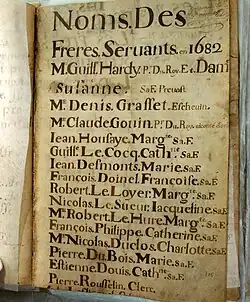 Noms. Des
Freres. Seruants. en 1682
M. Guill. Hardy. Pr. Du. Roy. Et. Dani
Susanne. Sa E Preuost
Mr. Denis. Grasset. Escheuin.
Mr. Claude. Gouin. Pr. Du. Roy.
Iean. Houssaye. Margte Sa. E
Guill. Le. Cocq. Cathne. Sa. E
Iean. Desmonts. Marie. Sa. E
François. Doinel. Françoise. Sa. E
Robert. Le Loyer. Margte. Sa. E
Nicolas. Le. Sueur. Iacqueline. Sa. E
Mr. Robert. Le. Hure. Margte Sa. E
François. Philippe. Catherine. Sa. E
Mr. Nicolas. Duclos. Charlotte. Sa. E
Pierre. Du. Bois. Marie. Sa. E
Estienne. Douis. Cathne. Sa. E
Pierre. Rousselin. Clerc.